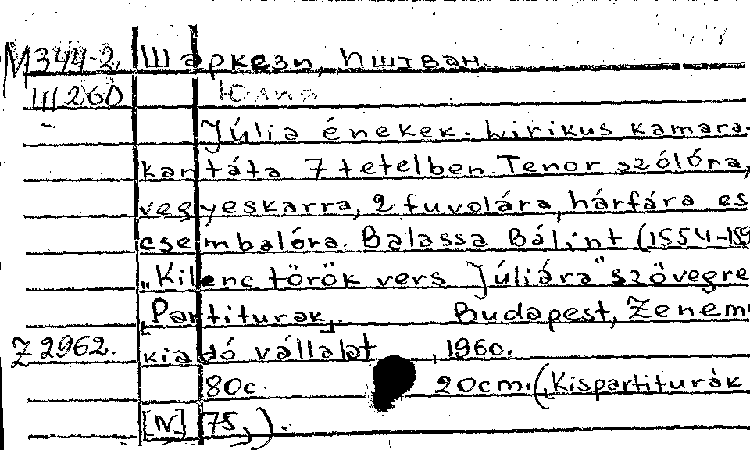 М344-2. Шаркези, Иштван.
Ш260 Юлиа
Júlia énekek. Lirikus kamara
kantáta 7 tetelben Tenor szólóra,
vegyeskarra, 2 fuvolára, hárfára es
csembalóra. Balassa Bálint (1554-159
„Kilenc török vers Júliára" szövegre
[Partiturak]. Budapest, Zenem
Z 2962. kiadó vállalat, 1960.
80c. 20cm. (Kispartiturák
[N] 75,).